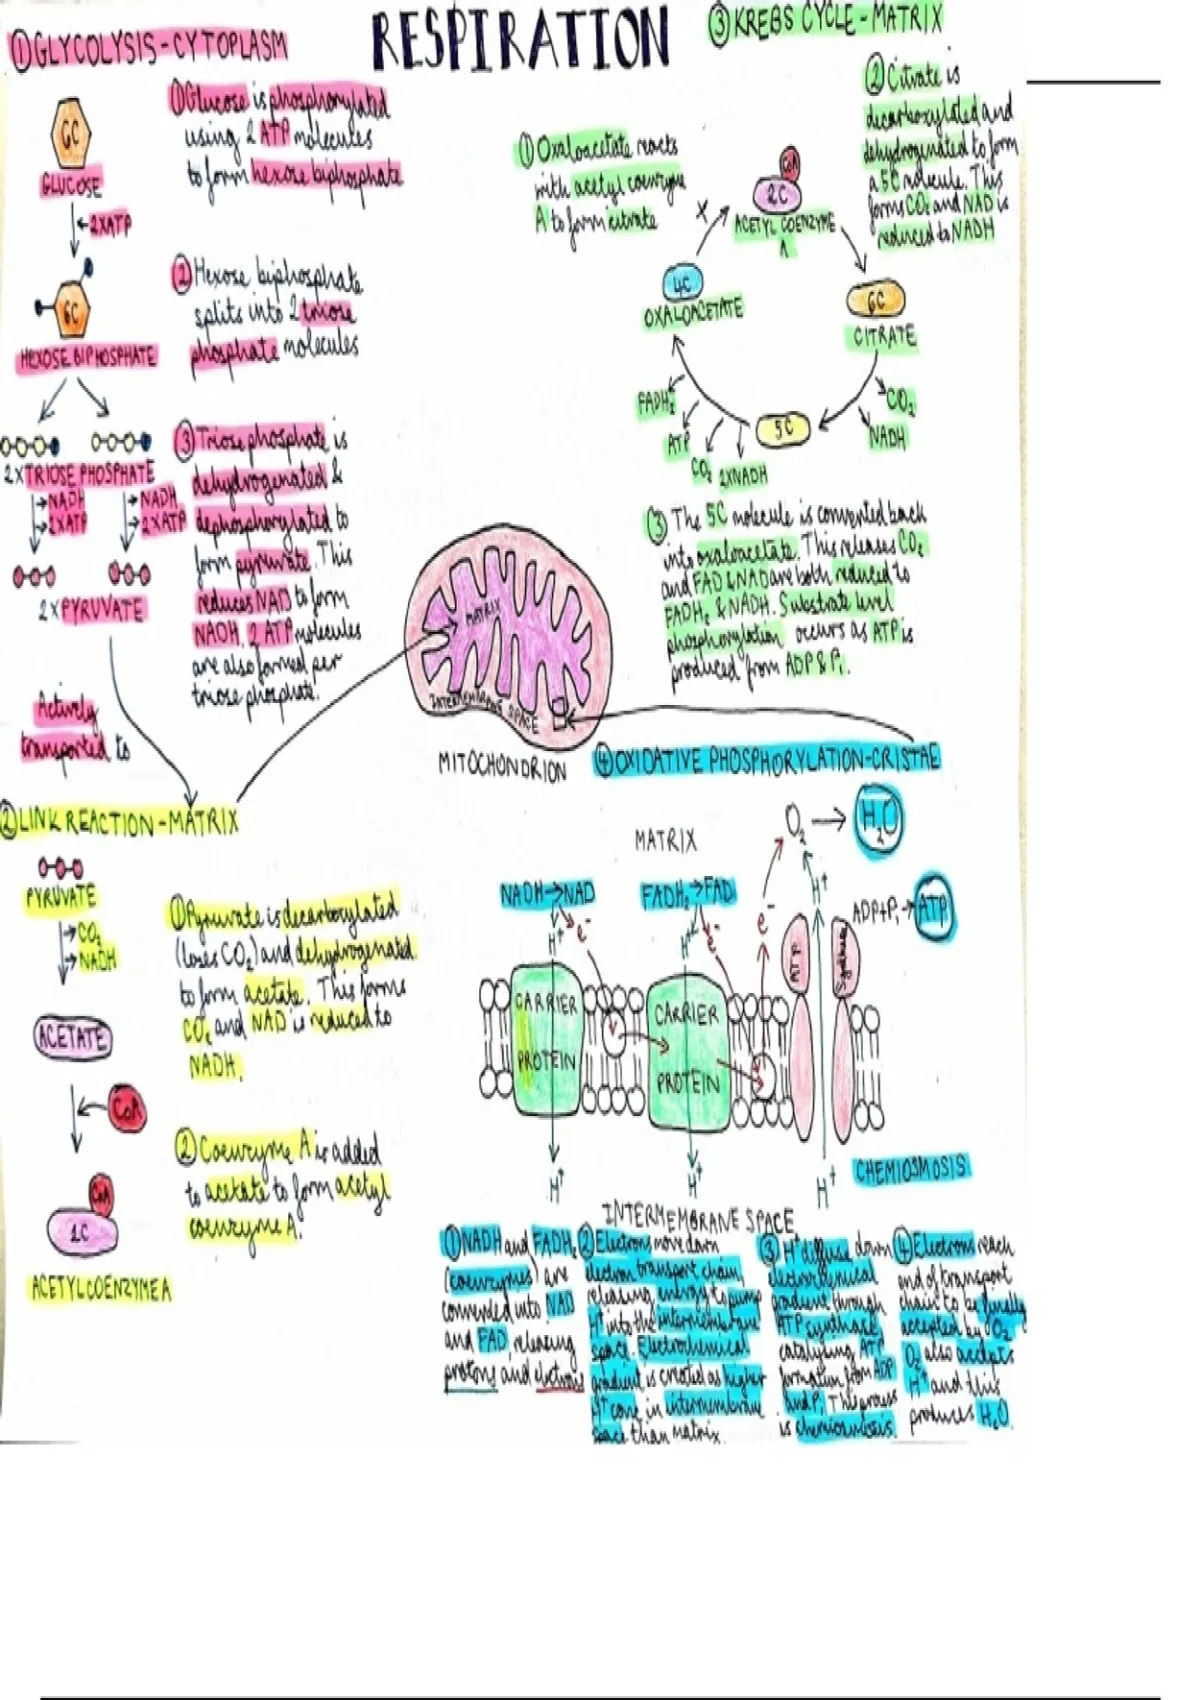 RESPIRATION
①GLYCOLYSIS-CYTOPLASM
GC
GLUCOSE
2XATP
6C
HEXOSE BIPHOSPHATE
2XTRIOSE PHOSPHATE
NADH
2XATP
NADH
2XATP
2XPYRUVATE
①Glucose is phosphorylated
using 2 ATP molecules
to form hexose biphosphate
②Hexose biphosphate
splits into 2 triose
phosphate molecules
③Triose phosphate is
dehydrogenated &
dephosphorylated to
form pyruvate. This
reduces NAD to form
NADH. 2 ATP molecules
are also formed per
triose phosphate.
Actively
transported to
②LINK REACTION-MATRIX
PYRUVATE
CO₂
NADH
ACETATE
CoA
CoA
2C
ACETYLCOENZYMEA
①Pyruvate is decarboxylated
(loses CO₂) and dehydrogenated
to form acetate. This forms
CO₂ and NAD is reduced to
NADH.
②Coenzyme A is added
to acetate to form acetyl
coenzyme A.
③KREBS CYCLE-MATRIX
①Oxaloacetate reacts
with acetyl coenzyme
A to form citrate
②Citrate is
decarboxylated and
dehydrogenated to form
a 5C molecule. This
forms CO₂ and NAD is
reduced to NADH
X
CoA
2C
ACETYL COENZYME
A
4C
OXALOACETATE
6C
CITRATE
CO₂
NADH
5C
FADH₂
ATP
CO₂
2XNADH
③The 5C molecule is converted back
into oxaloacetate. This releases CO₂
and FAD & NAD are both reduced to
FADH₂ & NADH. Substrate level
phosphorylation occurs as ATP is
produced from ADP & Pᵢ.
MATRIX
INTERMEMBRANE SPACE
MITOCHONDRION
④OXIDATIVE PHOSPHORYLATION-CRISTAE
MATRIX
O₂ → H₂O
NADH→NAD
FADH₂→FAD
H⁺
e⁻
H⁺
e⁻
e⁻
H⁺
ADP+Pᵢ→ATP
CARRIER
PROTEIN
CARRIER
PROTEIN
ATP
Synthase
H⁺
H⁺
H⁺
CHEMIOSMOSIS
INTERMEMBRANE SPACE
①NADH and FADH₂
(coenzymes) are
converted into NAD
and FAD, releasing
protons and electrons
②Electrons move down
electron transport chain,
releasing energy to pump
H⁺ into the intermembrane
space. Electrochemical
gradient is created as higher
H⁺ conc in intermembrane
space than matrix.
③H⁺ diffuse down
electrochemical
gradient through
ATP synthase,
catalysing ATP
formation from ADP
and Pᵢ. The process
is chemiosmosis.
④Electrons reach
end of transport
chain to be finally
accepted by O₂.
O₂ also accepts
H⁺ and this
produces H₂O.